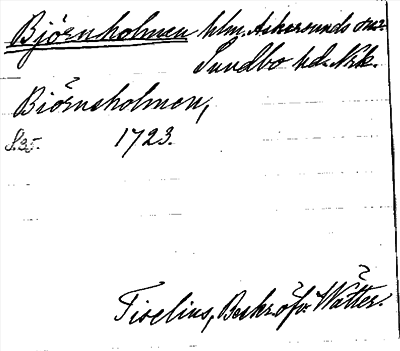 Björnholmen holm. Askersunds snr
Sundbo hd. Nrk.
Biörneholmen,
S.35. 1723.
Tiselius, Beskr. öfv. Wätter.